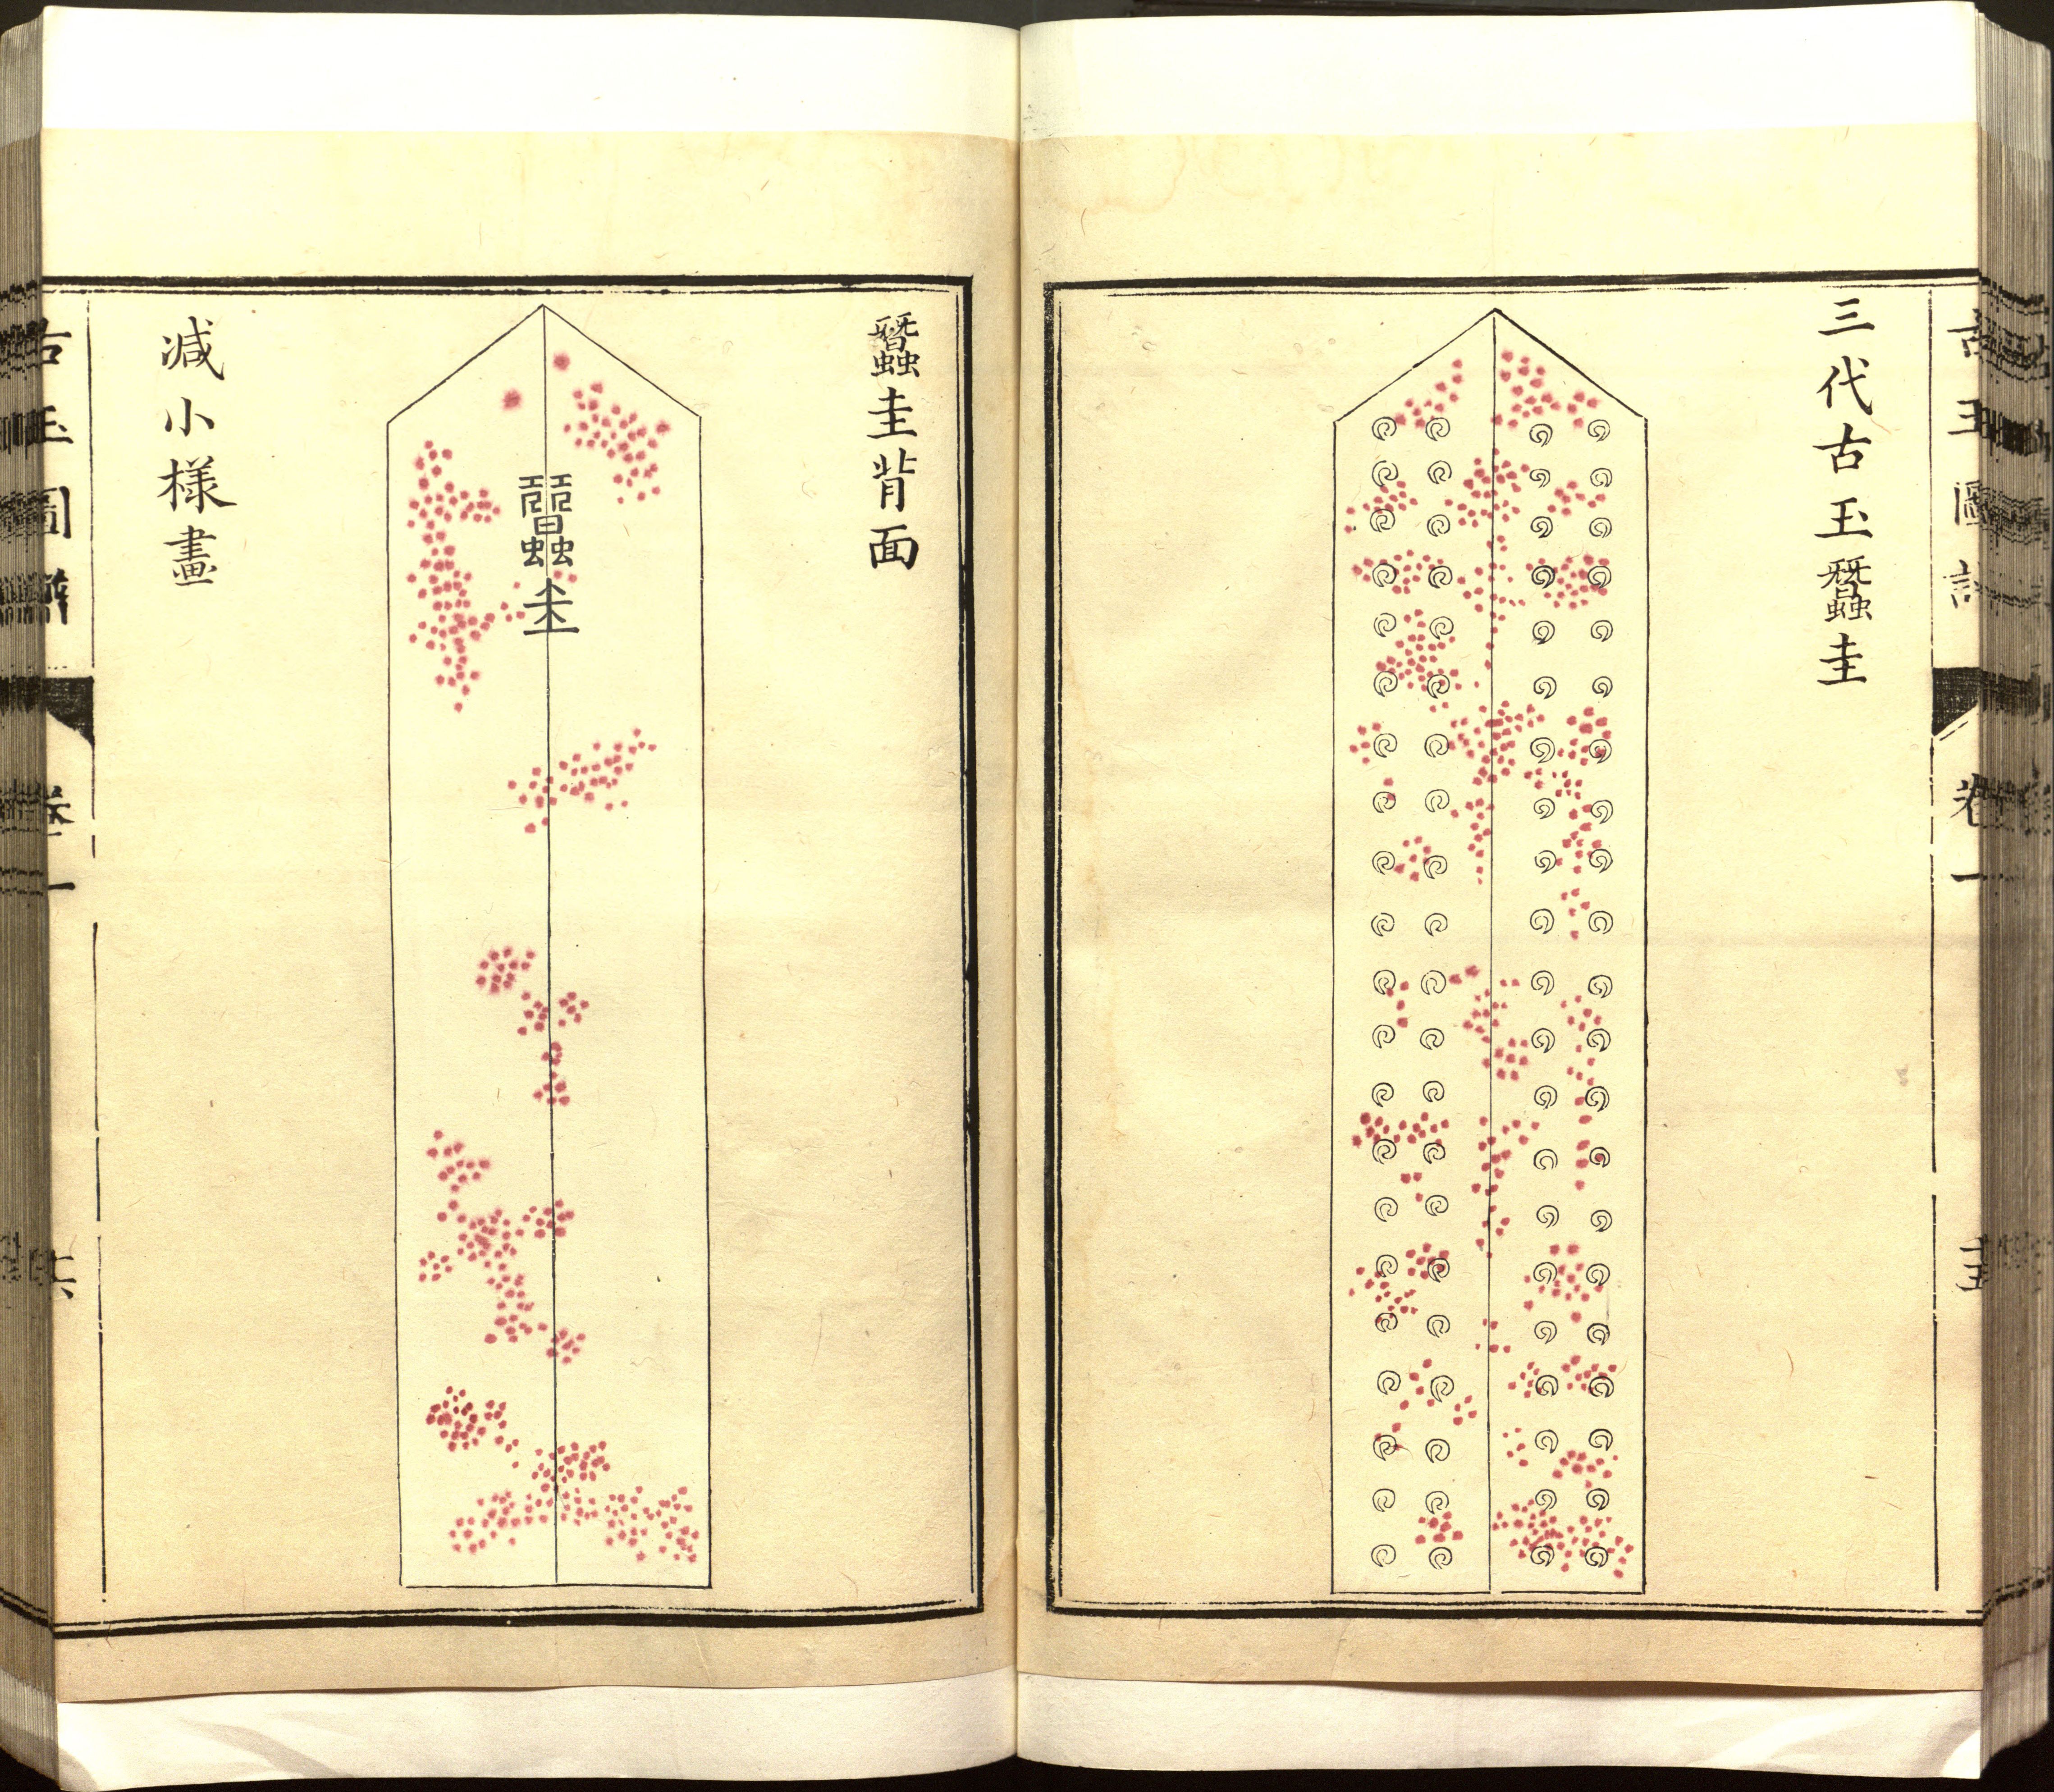 古玉圖譜 卷一
三代古玉蠶圭
蠶圭背面
蠶圭
減小樣畫
古玉圖譜 卷一